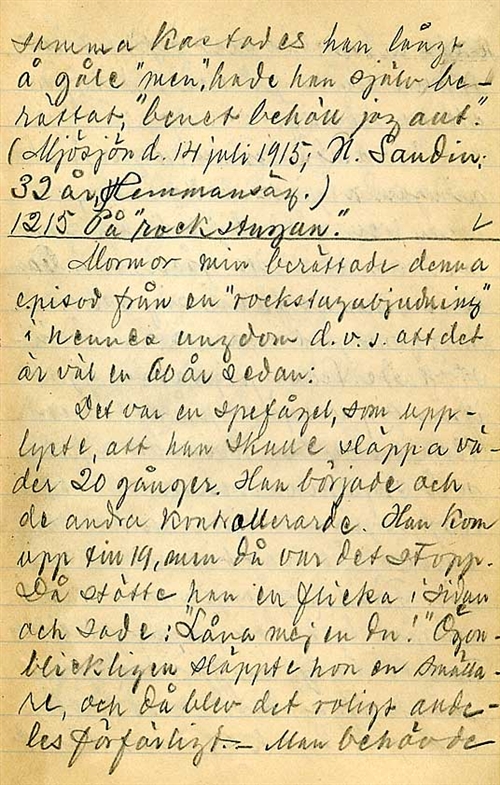 samma kastades han långt
å gåle "men", hade han själv be-
rättat, "benet behöll jag ant".
(Mjösjön d. 14 juli 1915; N. Sandin;
32 år, Hemmansäg.)
1215 På "rockstugan."
Mormor min berättade denna
episod från en "rockstugubjudning"
i hennes ungdom d.v.s. att det
är väl en 60 år sedan:
Det var en spefågel, som upp-
lyste, att han skulle släppa vä-
der 20 gånger. Han började och
de andra kontrollerarde. Han kom
upp till 19, men då var det stopp.
Då stötte han en flicka i sidan
och sade: "Låna mej en du!" Ögon-
blickligen släppte hon en smälla-
re, och då blev det roligt ande-
les förfärligt. – Man behövde